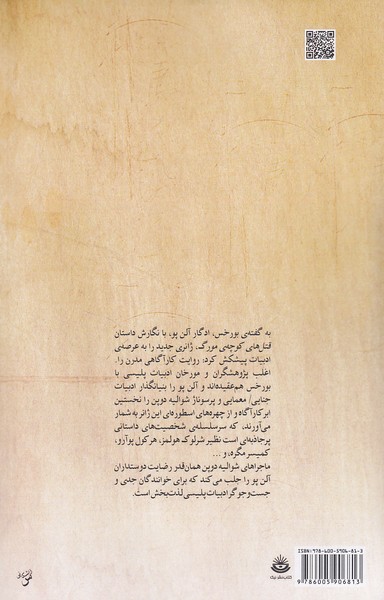 به گفته‌ی بورخس، ادگار آلن پو، با نگارش داستان
قتل‌های کوچه‌ی مورگ، ژانری جدید را به عرصه‌ی
ادبیات پیشکش کرد: روایت کارآگاهی مدرن را.
اغلب پژوهشگران و مورخان ادبیات پلیسی با
بورخس هم‌عقیده‌اند و آلن پو را بنیانگذار ادبیات
جنایی/ معمایی و پرسوناژ شوالیه دوپن را نخستین
ابرکارآگاه و از چهره‌های اسطوره‌ای این ژانر به شمار
می‌آورند، که سرسلسله‌ی شخصیت‌های داستانی
پرجاذبه‌ای است نظیر شرلوک هولمز، هرکول پوآرو،
کمیسر مگره، و ...
ماجراهای شوالیه دوپن همان‌قدر رضایت دوستداران
آلن پو را جلب می‌کند که برای خوانندگان جدی و
جست‌وجوگر ادبیات پلیسی لذت‌بخش است.
ISBN: 978-600-5906-81-3
9 786005 906813